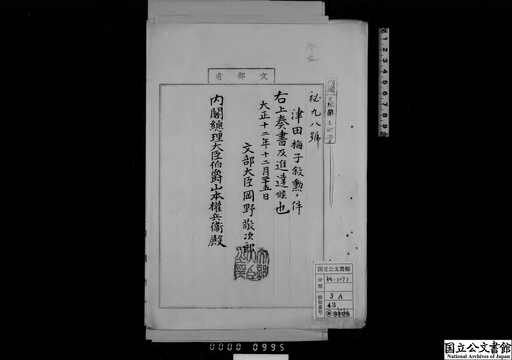 文部省
秘九八號
津田梅子敍勲ノ件
右上奏書及進達候也
大正十二年十二月十五日
文部大臣岡野敬次郎
内閣總理大臣伯爵山本權兵衞殿
国立公文書館
分類
3 A
0000 0995
国立公文書館
National Archives of Japan